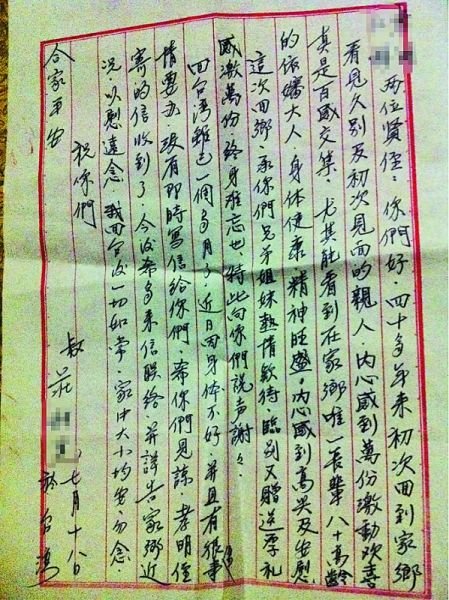 两位賢侄：你們好．四十多年来初次回到家鄉
看見久别及初次見面的親人．内心感到萬份激動歡喜
真是百感交集．尤其能看到在家鄉唯一長輩八十高齡
的依嬸大人．身体健康精神旺盛．内心感到高兴及安慰
這次回鄉．承你們兄弟姐妹熱情欸待．臨别又贈送厚礼
感激萬份終身難忘也．特此向你們説声謝々．
回台湾雖已一個多月了．近日因身体不好．并且有很多事
情要办．没有即時寫信給你們．希你們見諒．孝明侄
寄的信收到了．今後希多来信聯絡．并詳告家鄉近
况以慰遠念．我回台後一切如常．家中大小均安．勿念．
祝你們
合家平安
叔 莊
七月十八日
於台湾